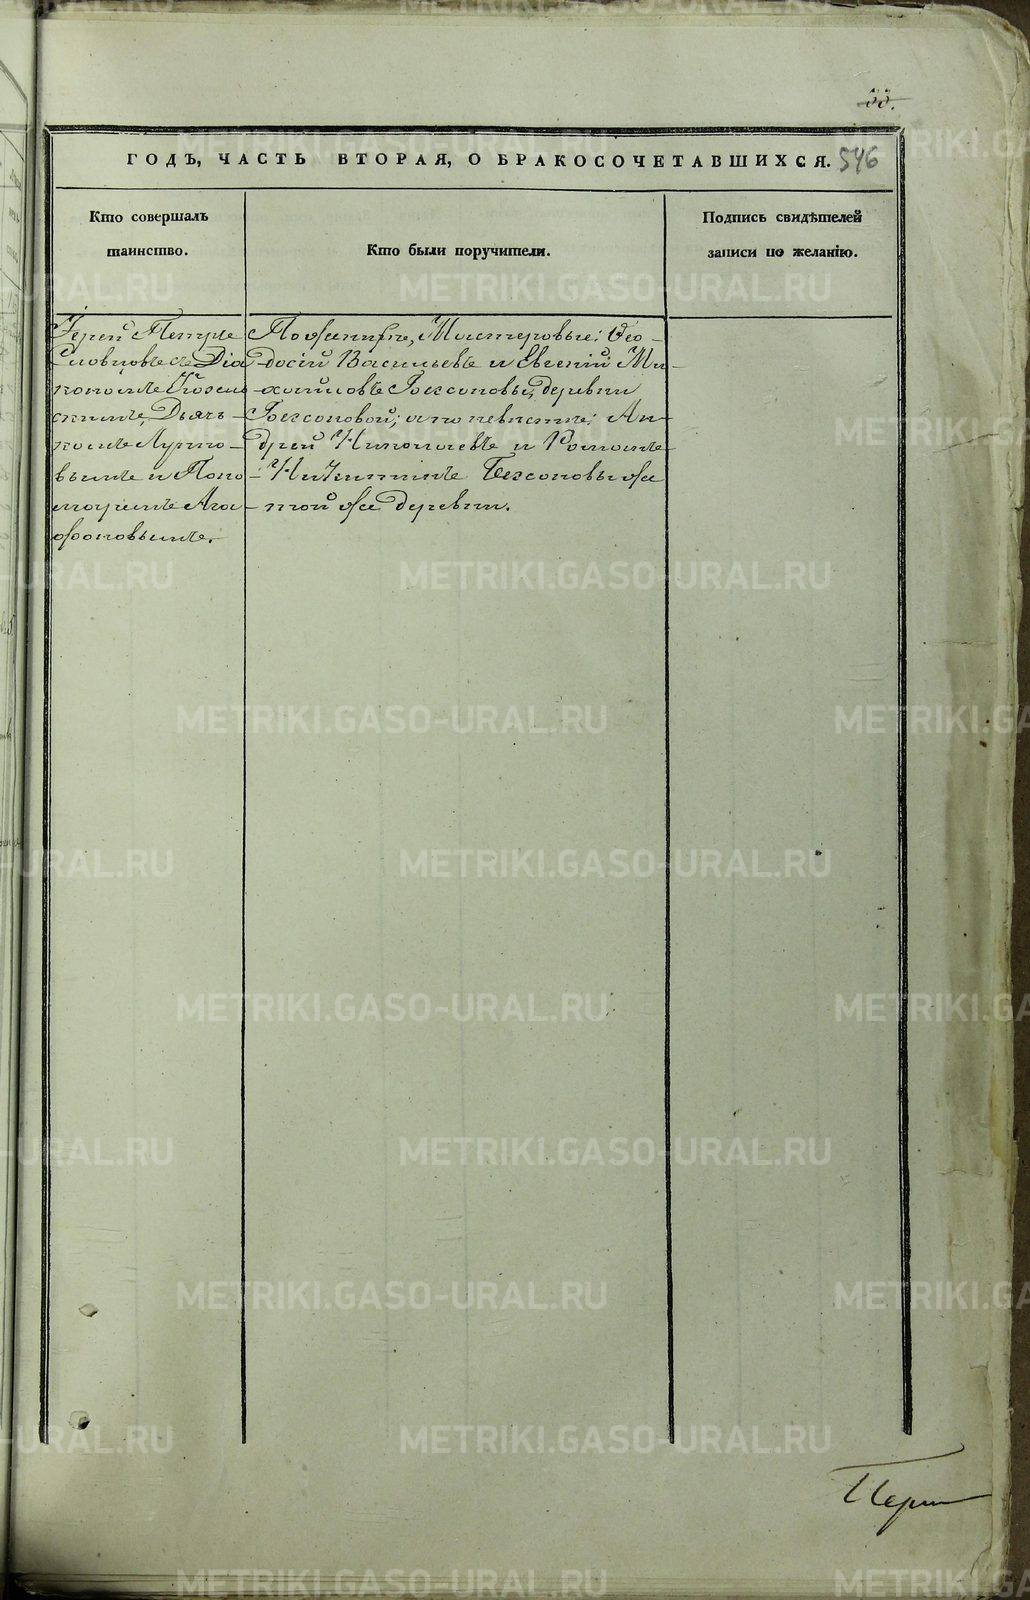 55.
ГОДЪ, ЧАСТЬ ВТОРАЯ, О БРАКОСОЧЕТАВШИХСЯ. 546
Кто совершалъ
таинство.
Кто были поручители.
Подпись свидѣтелей
записи по желанію.
Іерей Петръ
Словцовъ съ Діа-
кономъ
скимъ, Дьяч-
комъ Луппо-
вымъ и Поно-
маремъ Ага-
фоновымъ.
По женихѣ, Мастеровые: Ѳео-
досій Васильевъ и Евгеній Ми-
хайловъ Бексоновы, деревни
Бексоновой; а по невѣстѣ: Ан-
дрей Николаевъ и Романъ
Никитинъ Бексоновы же
той же деревни.
METRIKI.GASO-URAL.RU